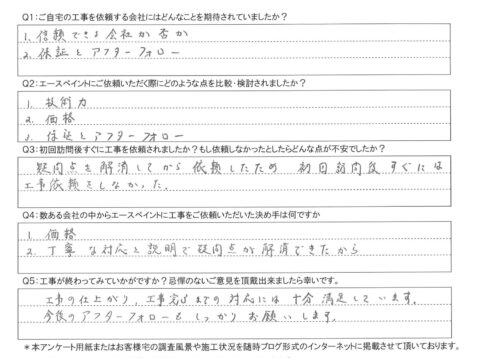 Q1：ご自宅の工事を依頼する会社にはどんなことを期待されていましたか？
1. 信頼できる会社か否か
2. 保証とアフターフォロー
Q2：エースペイントにご依頼いただく際にどのような点を比較・検討されましたか？
1. 技術力
2. 価格
3. 保証とアフターフォロー
Q3：初回訪問後すぐに工事を依頼されましたか？もし依頼しなかったとしたらどんな点が不安でしたか？
疑問点を解消してから依頼したため 初回訪問後すぐには
工事依頼をしなかった.
Q4：数ある会社の中からエースペイントに工事をご依頼いただいた決め手は何ですか
1. 価格
2. 丁寧な対応と説明で疑問点が解消できたから
Q5：工事が終わってみていかがですか？忌憚のないご意見を頂戴出来ましたら幸いです。
工事の仕上がり、工事完了までの対応には十分満足しています.
今後のアフターフォローもしっかりお願いします.
＊本アンケート用紙またはお客様宅の調査風景や施工状況を随時ブログ形式のインターネットに掲載させて頂いております。